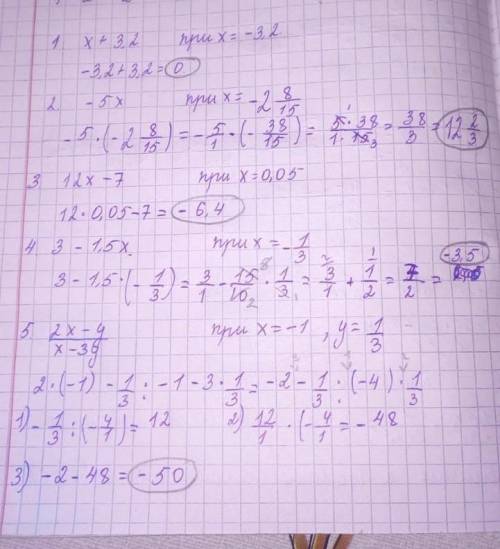 1. x + 3,2 при x = -3,2
-3,2 + 3,2 = 0
2. -5x при x = -2 8/15
-5 · (-2 8/15) = -5/1 · (-38/15) = 5 · 38/1 · 15 = 38/3 = 12 2/3
3 12x - 7 при x = 0,05
12 · 0,05 - 7 = -6,4
4 3 - 1,5x при x = -1/3
3 - 1,5 · (-1/3) = 3/1 - 15/10 · 1/3 = 3/1 + 1/2 = 7/2 = -3,5
5. 2x - y/x - 3y при x = -1, y = 1/3
2 · (-1) - 1/3 : -1 - 3 · 1/3 = -2 - 1/3 : (-4) · 1/3
1) -1/3 : (-4/1) = 12 2) 12/1 · (-4/1 = -48
3) -2 - 48 = -50